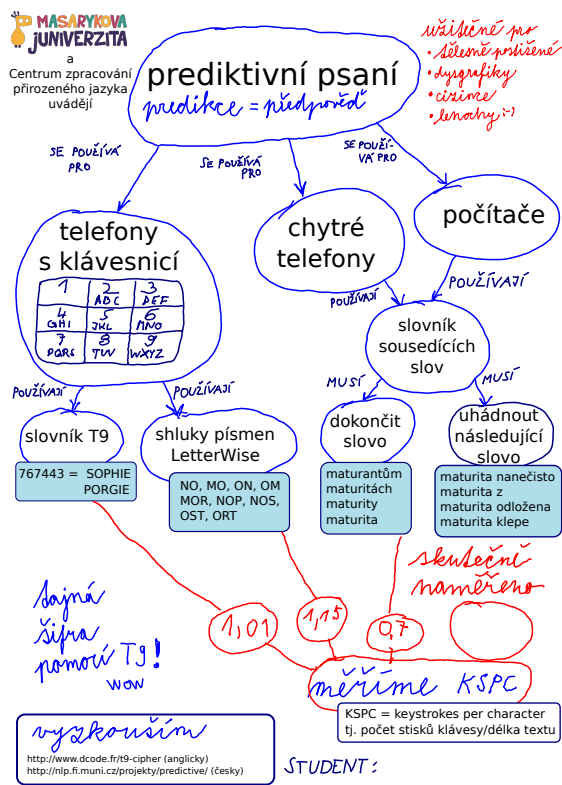 MASARYKOVA
JUNIVERZITA
a
Centrum zpracování
přirozeného jazyka
uvádějí
prediktivní psaní
predikce = předpověď
užitečné pro
• tělesně postižené
• dysgrafiky
• cizince
• lenochy :-)
SE POUŽÍVÁ
PRO
SE POUŽÍVÁ
PRO
SE POUŽÍ-
VÁ PRO
telefony
s klávesnicí
1 2 3
ABC DEF
4 5 6
GHI JKL MNO
7 8 9
PQRS TUV WXYZ
chytré
telefony
počítače
POUŽÍVAJÍ
POUŽÍVAJÍ
slovník
sousedících
slov
POUŽÍVAJÍ
POUŽÍVAJÍ
MUSÍ
MUSÍ
slovník T9
shluky písmen
LetterWise
dokončit
slovo
uhádnout
následující
slovo
767443 = SOPHIE
PORGIE
NO, MO, ON, OM
MOR, NOP, NOS,
OST, ORT
maturantům
maturitách
maturity
maturita
maturita nanečisto
maturita z
maturita odložena
maturita klepe
skutečně
naměřeno
tajná
šifra
pomocí T9!
WOW
1,01
1,15
0,7
měříme KSPC
KSPC = keystrokes per character
tj. počet stisků klávesy/délka textu
vyzkouším
http://www.dcode.fr/t9-cipher (anglicky)
http://nlp.fi.muni.cz/projekty/predictive/ (česky)
STUDENT: